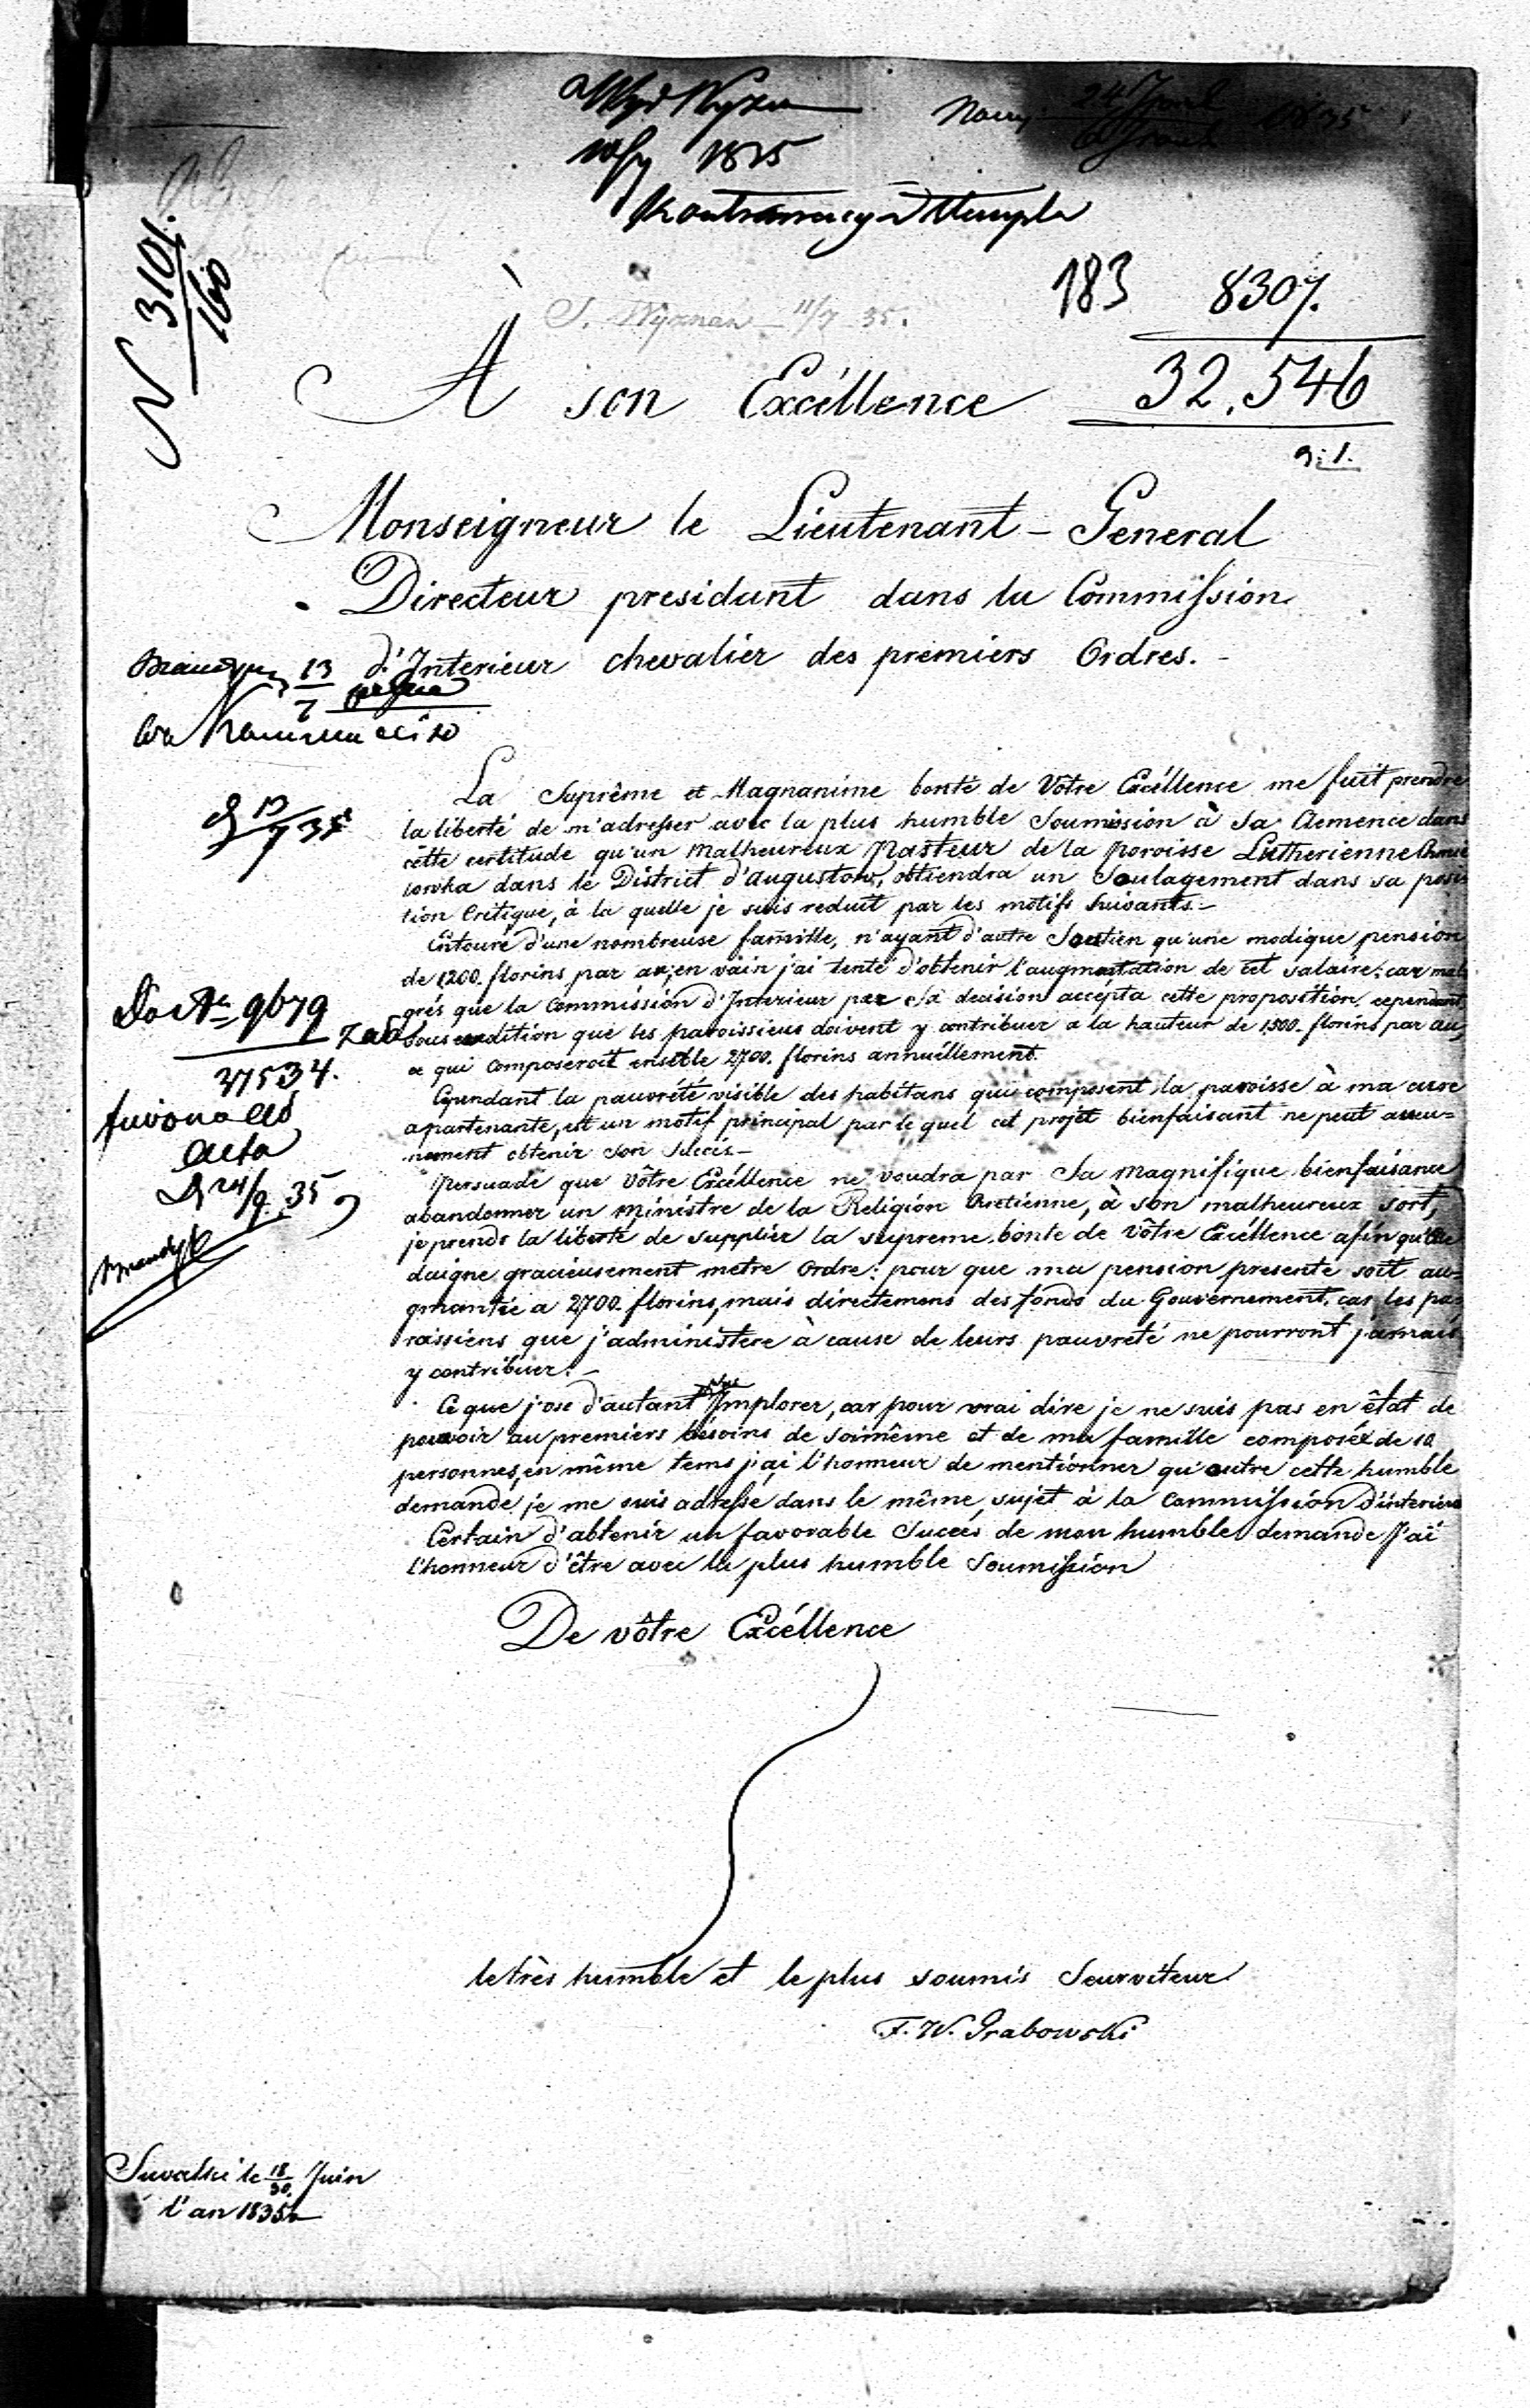 1835
N 3101.
160
183 8307.
S. Wyznań 11/7 35.
32.546
À son Excéllence
Monseigneur le Lieutenant-General
Directeur presidant dans la Commission
d'Interieur chevalier des premiers Ordres.-
13
7
13/7 35
La Suprême et Magnanime bonté de Vôtre Excéllence me fait prendre
la liberté de m'adresser avec la plus humble Soumission à Sa Clemence dans
cette certitude qu'un Malheureux Pasteur de la Paroisse Lutherienne
lowka dans le District d'Augustow, obtiendra un Soulagement dans sa posi-
tion Critique, à la quelle je suis reduit par les motifs Suivants.-
Entouré d'une nombreuse famille, n'ayant d'autre Soutien qu'une modique pension
de 1200. florins par an; en vain j'ai tenté d'obtenir l'augmentation de cet salaire; car mal-
grés que la Commission d'Interieur par Sa decision accépta cette proposition, cependant
Sous condition que les paroissiens doivent y contribuer a la hauteur de 1500. florins par an,
ce qui Composeroit ensemble 2700. florins annuéllement.
Cependant la pauvrété visible des habitans qui composent la paroisse à ma cure
apartenante, est un motif principal par le quel cet projét bienfaisant ne peut aucu=
nement obtenir Son Succés.-
Persuadé que Vôtre Excéllence ne voudra par Sa Magnifique bienfaisance
abandonner un Ministre de la Religion Cretienne, à Son malheureux Sort,
je prends la liberté de supplier la supreme bonte de Vôtre Excéllence afin qu'Elle
daigne gracieusement metre Ordre: pour que ma pension presente soit au=
gmantée a 2700. florins, mais directemens des fonds du Gouvernement, car les pa=
roissiens que j'administere à cause de leurs pauvreté ne pourront jamais
y contribuer.-
Ce que j'ose d'autant plus Implorer, car pour vrai dire je ne suis pas en êtat de
pouvoir au premiers besoins de Soimême et de ma famille composéé de 10
personnes, en même tems j'ai l'honneur de mentionner qu'outre cette humble
demande je me suis adressé dans le même sujet à la Commission d'interieur
Cèrtain d'abtenir un favorable Succes de mon humble demande J'ai
l'honneur d'être avec la plus humble Soumission
9679
27534.
acta
24/9 35
De vôtre Excéllence
le très humble et le plus soumis Seurviteur
F. W. Grabowski
Suvalki le 18/30. Juin
l'an 1835